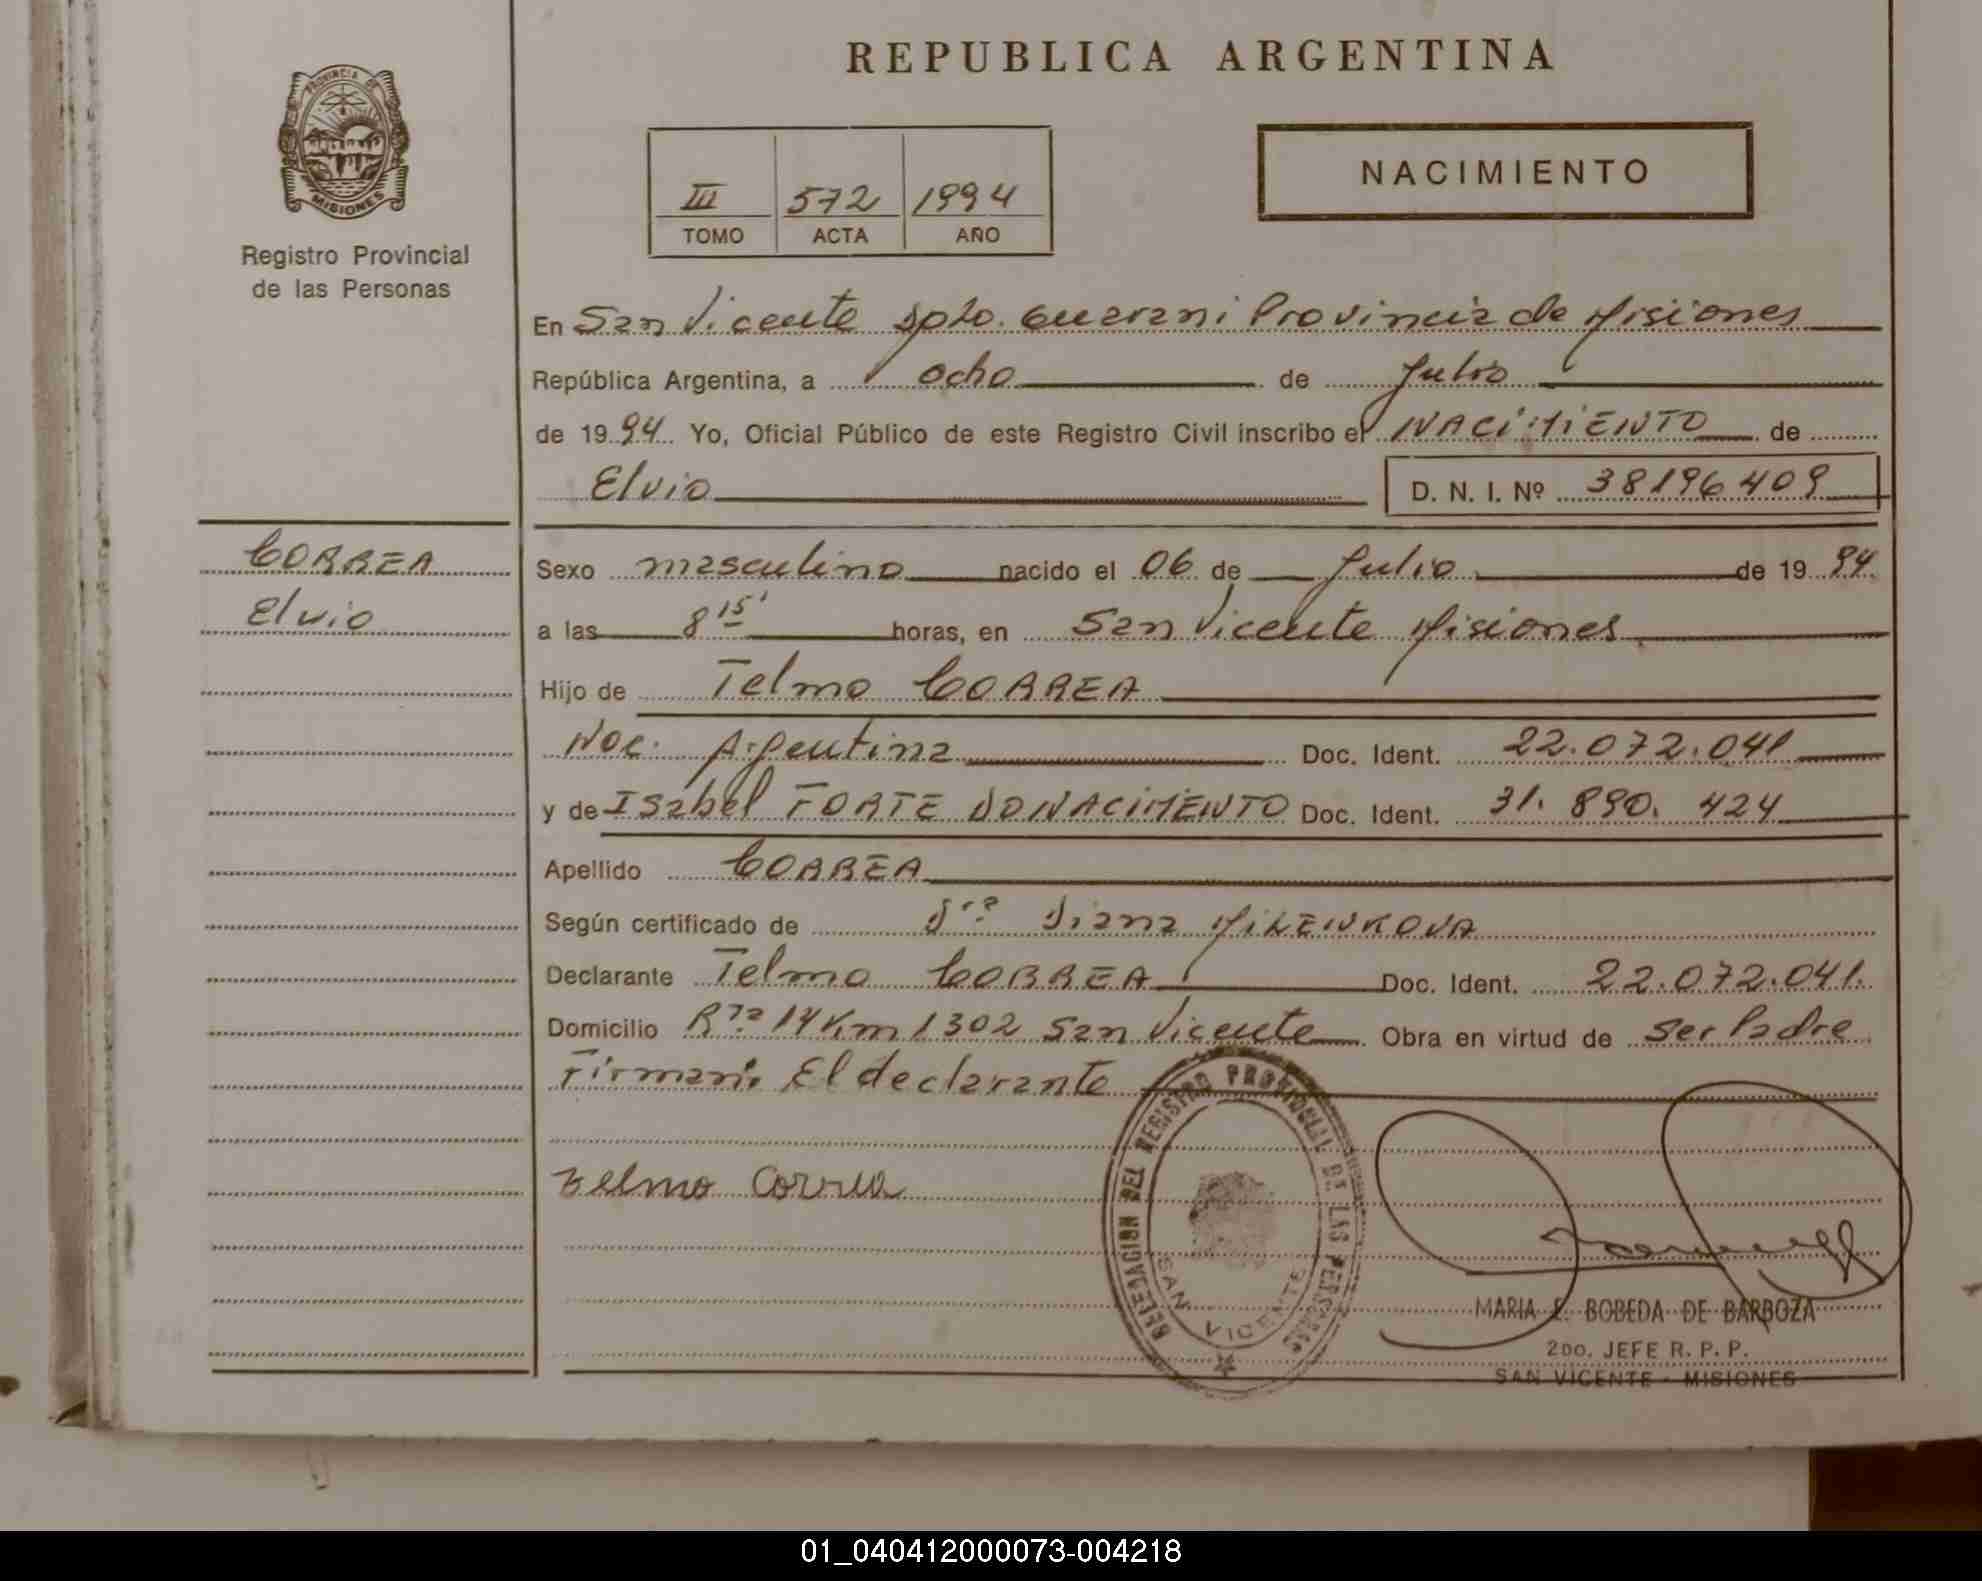 REPUBLICA ARGENTINA
PROVINCIA DE
MISIONES
Registro Provincial
de las Personas
III 572 1994
TOMO ACTA AÑO
NACIMIENTO
En San Vicente Dpto. Guarani Provincia de Misiones
República Argentina, a ocho de Julio
de 1994 Yo, Oficial Público de este Registro Civil inscribo el NACIMIENTO de
Elvio D. N. I. Nº 38196409
CORREA
Elvio
Sexo masculino nacido el 06 de Julio de 1994.
a las 8 15' horas, en San Vicente Misiones
Hijo de Telmo CORREA
Nac. Argentina Doc. Ident. 22.072.041
y de Isabel FORTE DONACIMENTO Doc. Ident. 31.890.424
Apellido CORREA
Según certificado de Dra Diana MILENKOVA
Declarante Telmo CORREA Doc. Ident. 22.072.041.
Domicilio Rta 14 Km 1302 San Vicente Obra en virtud de ser Padre
Firman: El declarante
Telmo Correa
DELEGACION DEL REGISTRO PROVINCIAL DE LAS PERSONAS
SAN VICENTE
MARIA E. BOBEDA DE BARBOZA
2DO. JEFE R. P. P.
SAN VICENTE - MISIONES
01_040412000073-004218